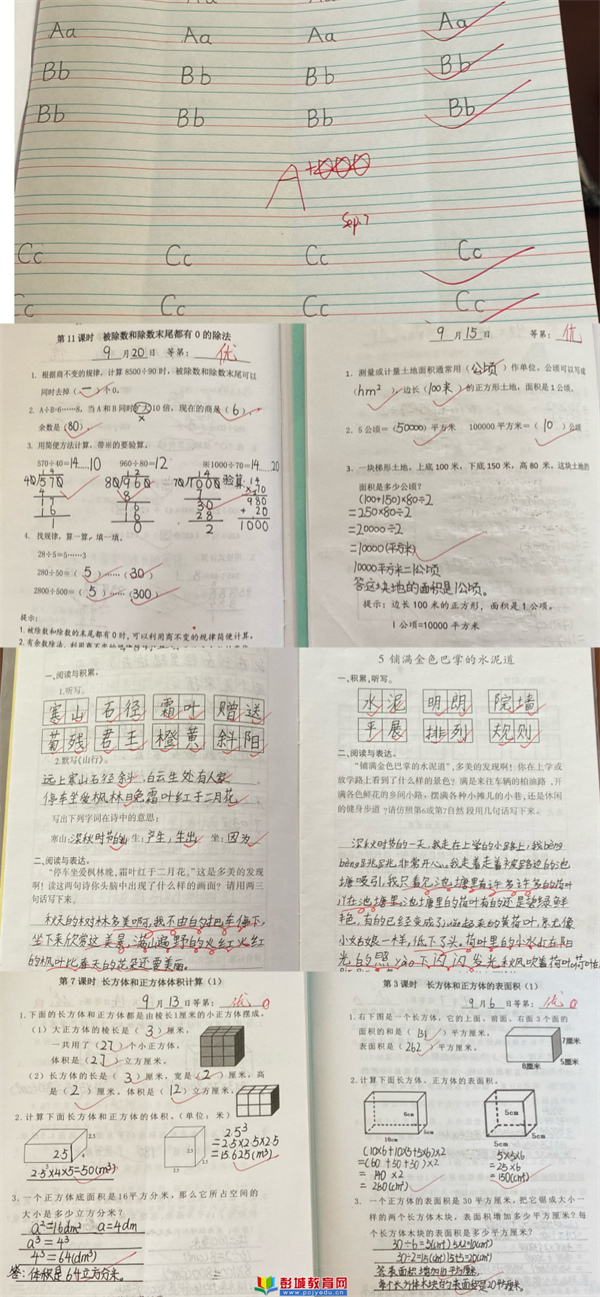 Aa Aa Aa Aa
Bb Bb Bb Bb
Bb Bb Bb Bb
A+
Sep.7
Cc Cc Cc Cc
Cc Cc Cc Cc
第11课时 被除数和除数末尾都有0的除法
9月20日 等第：优
1. 根据商不变的规律，计算8500÷90时，被除数和除数末尾可以
同时去掉（一）个0。
2. A÷B=6……8，当A和B同时扩大10倍，现在的商是（6），
余数是（80）。
3. 用简便方法计算，带※的要验算。
570÷40=14……10 960÷80=12 ※1000÷70=14……20
验算
4. 找规律，算一算，填一填。
28÷5=5……3
280÷50=（5）……（30）
2800÷500=（5）……（300）
提示：
1.被除数和除数的末尾都有0时，可以利用商不变的规律简便计算。
9月15日 等第：优
1. 测量或计量土地面积通常用（公顷）作单位，公顷可以写成
（hm²），边长（100米）的正方形土地，面积是1公顷。
2. 5公顷=（50000）平方米 100000平方米=（10）公顷
3. 一块梯形土地，上底100米，下底150米，高80米，这块土地的
面积是多少公顷？
(100+150)×80÷2
=250×80÷2
=20000÷2
=10000(平方米)
10000平方米=1公顷
答这块地的面积是1公顷。
提示：边长100米的正方形，面积是1公顷。
1公顷=10000平方米
一、阅读与积累。
1.听写。
寒山 石径 霜叶 赠送
菊残 君王 橙黄 斜阳
2.默写《山行》。
远上寒山石径斜，白云生处有人家
停车坐爱枫林晚霜叶红于二月花
写出下列字词在诗中的意思：
寒山：深秋时节的山 生：产生，生出 坐：因为
二、阅读与表达。
“停车坐爱枫林晚，霜叶红于二月花。”这是多美的发现
啊！读这两句诗你头脑中出现了什么样的画面？请用两三
句话写下来。
秋天的树林多美啊，我不由的把车停下，
坐下来欣赏这美景，满山遍野的火红火红
的枫叶比春天的花朵还要美丽。
5 铺满金色巴掌的水泥道
一、积累，听写。
水泥 明朗 院墙
平展 排列 规则
二、阅读与表达。
“铺满金色巴掌的水泥道”，多美的发现啊！你在上学或
放学路上看到了什么样的景色？满是来往车辆的柏油路，开
满各色鲜花的乡间小路，摆满各种小摊儿的小巷，还是休闲
的健身步道？请仿照第6或第7自然段用几句话写下来。
深秋时节的一天，我走在上学的小路上，我bèng
bèng跳跳，非常开心。我走着走着被路边的池
塘吸引，我只看见池塘里有许多许多的荷叶
小姑娘一样，低下了头。荷叶里的小水
第7课时 长方体和正方体体积计算（1）
9月13日等第：优
1. 下面的长方体和正方体都是由棱长1厘米的小正方体摆成。
（1）大正方体的棱长是（3）厘米，
一共用了（27）个小正方体，
体积是（27）立方厘米。
（2）长方体的长是（3）厘米，宽是（2）厘米，高
是（2）厘米，体积是（12）立方厘米。
2. 计算下面长方体和正方体的体积。（单位：米）
2.5 2.5 2.5
2.5³
=2.5×2.5×2.5
=15.625(m³)
2.5×4×5=50(m³)
3. 一个正方体底面积是16平方分米，那么它所占空间的
大小是多少立方分米？
a²=16dm² a=4dm
a³=4³
4³=64(dm³)
答：体积是64立方分米。
第3课时 长方体和正方体的表面积（1）
9月6日等第：优
1. 右下图是一个长方体，它的上面、前面、右面3个面的
面积的和是（131）平方厘米，
表面积是（262）平方厘米。
7厘米
8厘米 5厘米
2. 计算下面长方体、正方体的表面积。
6cm 5cm
10cm 5cm 5cm 5cm
(10×6+10×5+5×6)×2
=(60+50+30)×2
=140×2
=280(cm²)
5×5×6
=25×6
=150(cm²)
3. 一个正方体的表面积是30平方厘米，把它锯成大小一
样的两个长方体木块，表面积增加多少平方厘米？每
个长方体木块的表面积是多少平方厘米？
30÷6=5(cm²) 5×2=10(cm²)
30÷2=15(cm²) 15+5=20(cm²)
答表面积增加10平方厘米，
每个长方体木块的表面积是20平方厘米。
彭城教育网
www.pcjyedu.cn